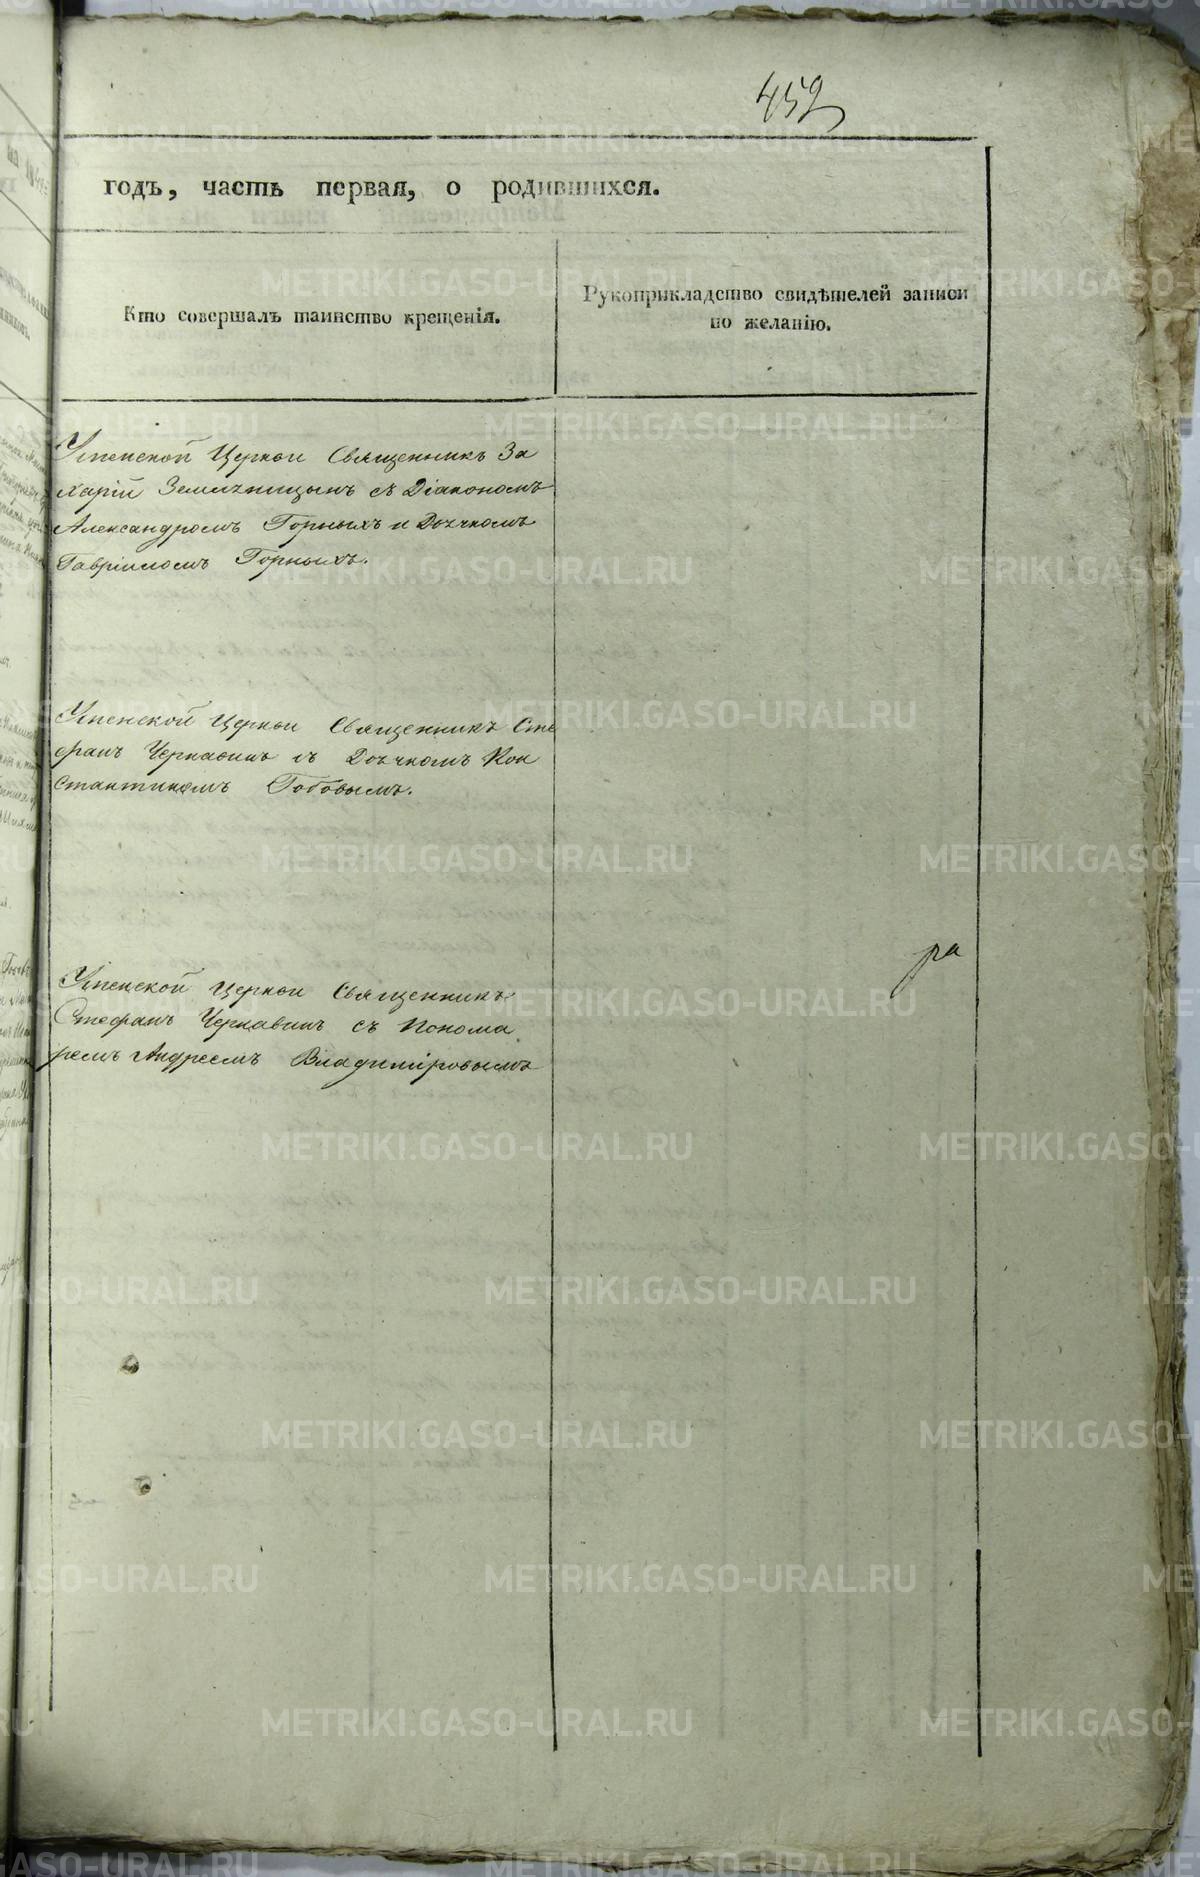 452
годъ, часть первая, о родившихся.
Кто совершалъ таинство крещенія.
Рукоприкладство свидѣтелей записи
по желанію.
Успенской Церкви Священникъ За
харій Земляницынъ съ Діакономъ
Александромъ Горныхъ и Дьячкомъ
Гавріиломъ Горныхъ.
Успенской Церкви Священникъ Сте
фанъ Чернавинъ съ Дьячкомъ Кон
стантиномъ Гобовымъ.
ра
Успенской Церкви Священникъ
Стефанъ Чернавинъ съ Понома
ремъ Андреемъ Владиміровымъ
METRIKI.GASO-URAL.RU